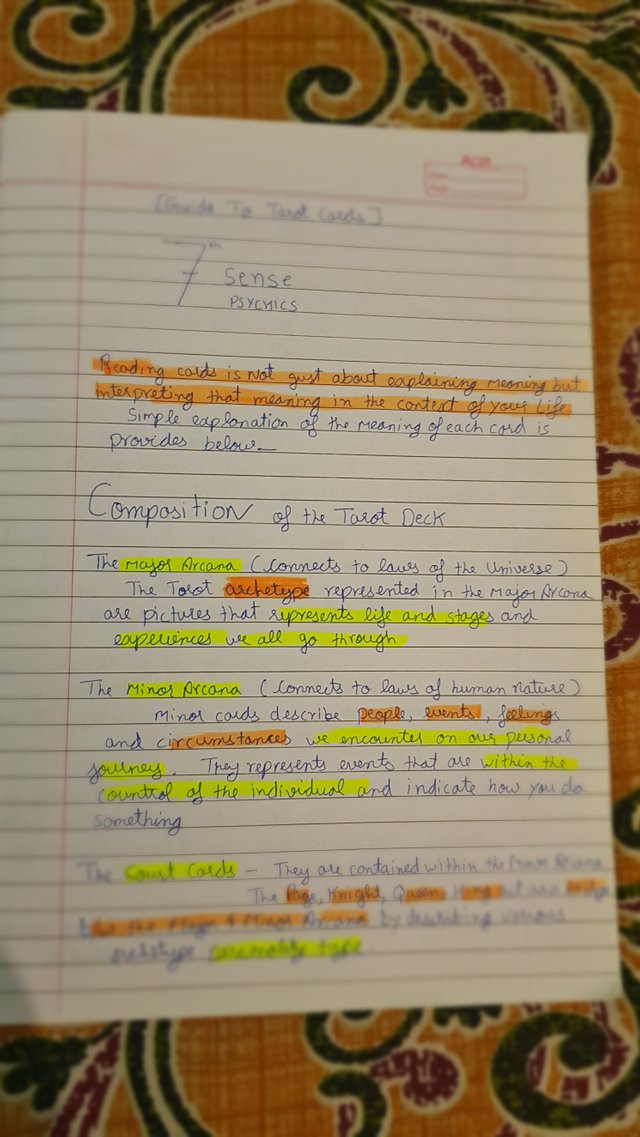 AQB
Date
Page
[Guide To Tarot Cards]
7th
Sense
PSYCHICS
Reading cards is not gust about explaining meaning but
interpreting that meaning in the context of your life
Simple explanation of the meaning of each card is
provides below_
Composition of the Tarot Deck
The Major Arcana (Connects to laws of the Universe)
The Tarot archetype represented in the Major Arcana
are pictures that represents life and stages and
experiences we all go through
The Minor Arcana (Connects to laws of human nature)
Minor cards describe people, events, feelings
and circumstances we encounter on our personal
journey. They represents events that are within the
countrol of the individual and indicate how you do
something
The Court Cards - They are contained within the Minor Arcana
The Page, Knight, Queen King act as a bridge
b/w the Major & Minor Arcana by describing various
archetype personality type